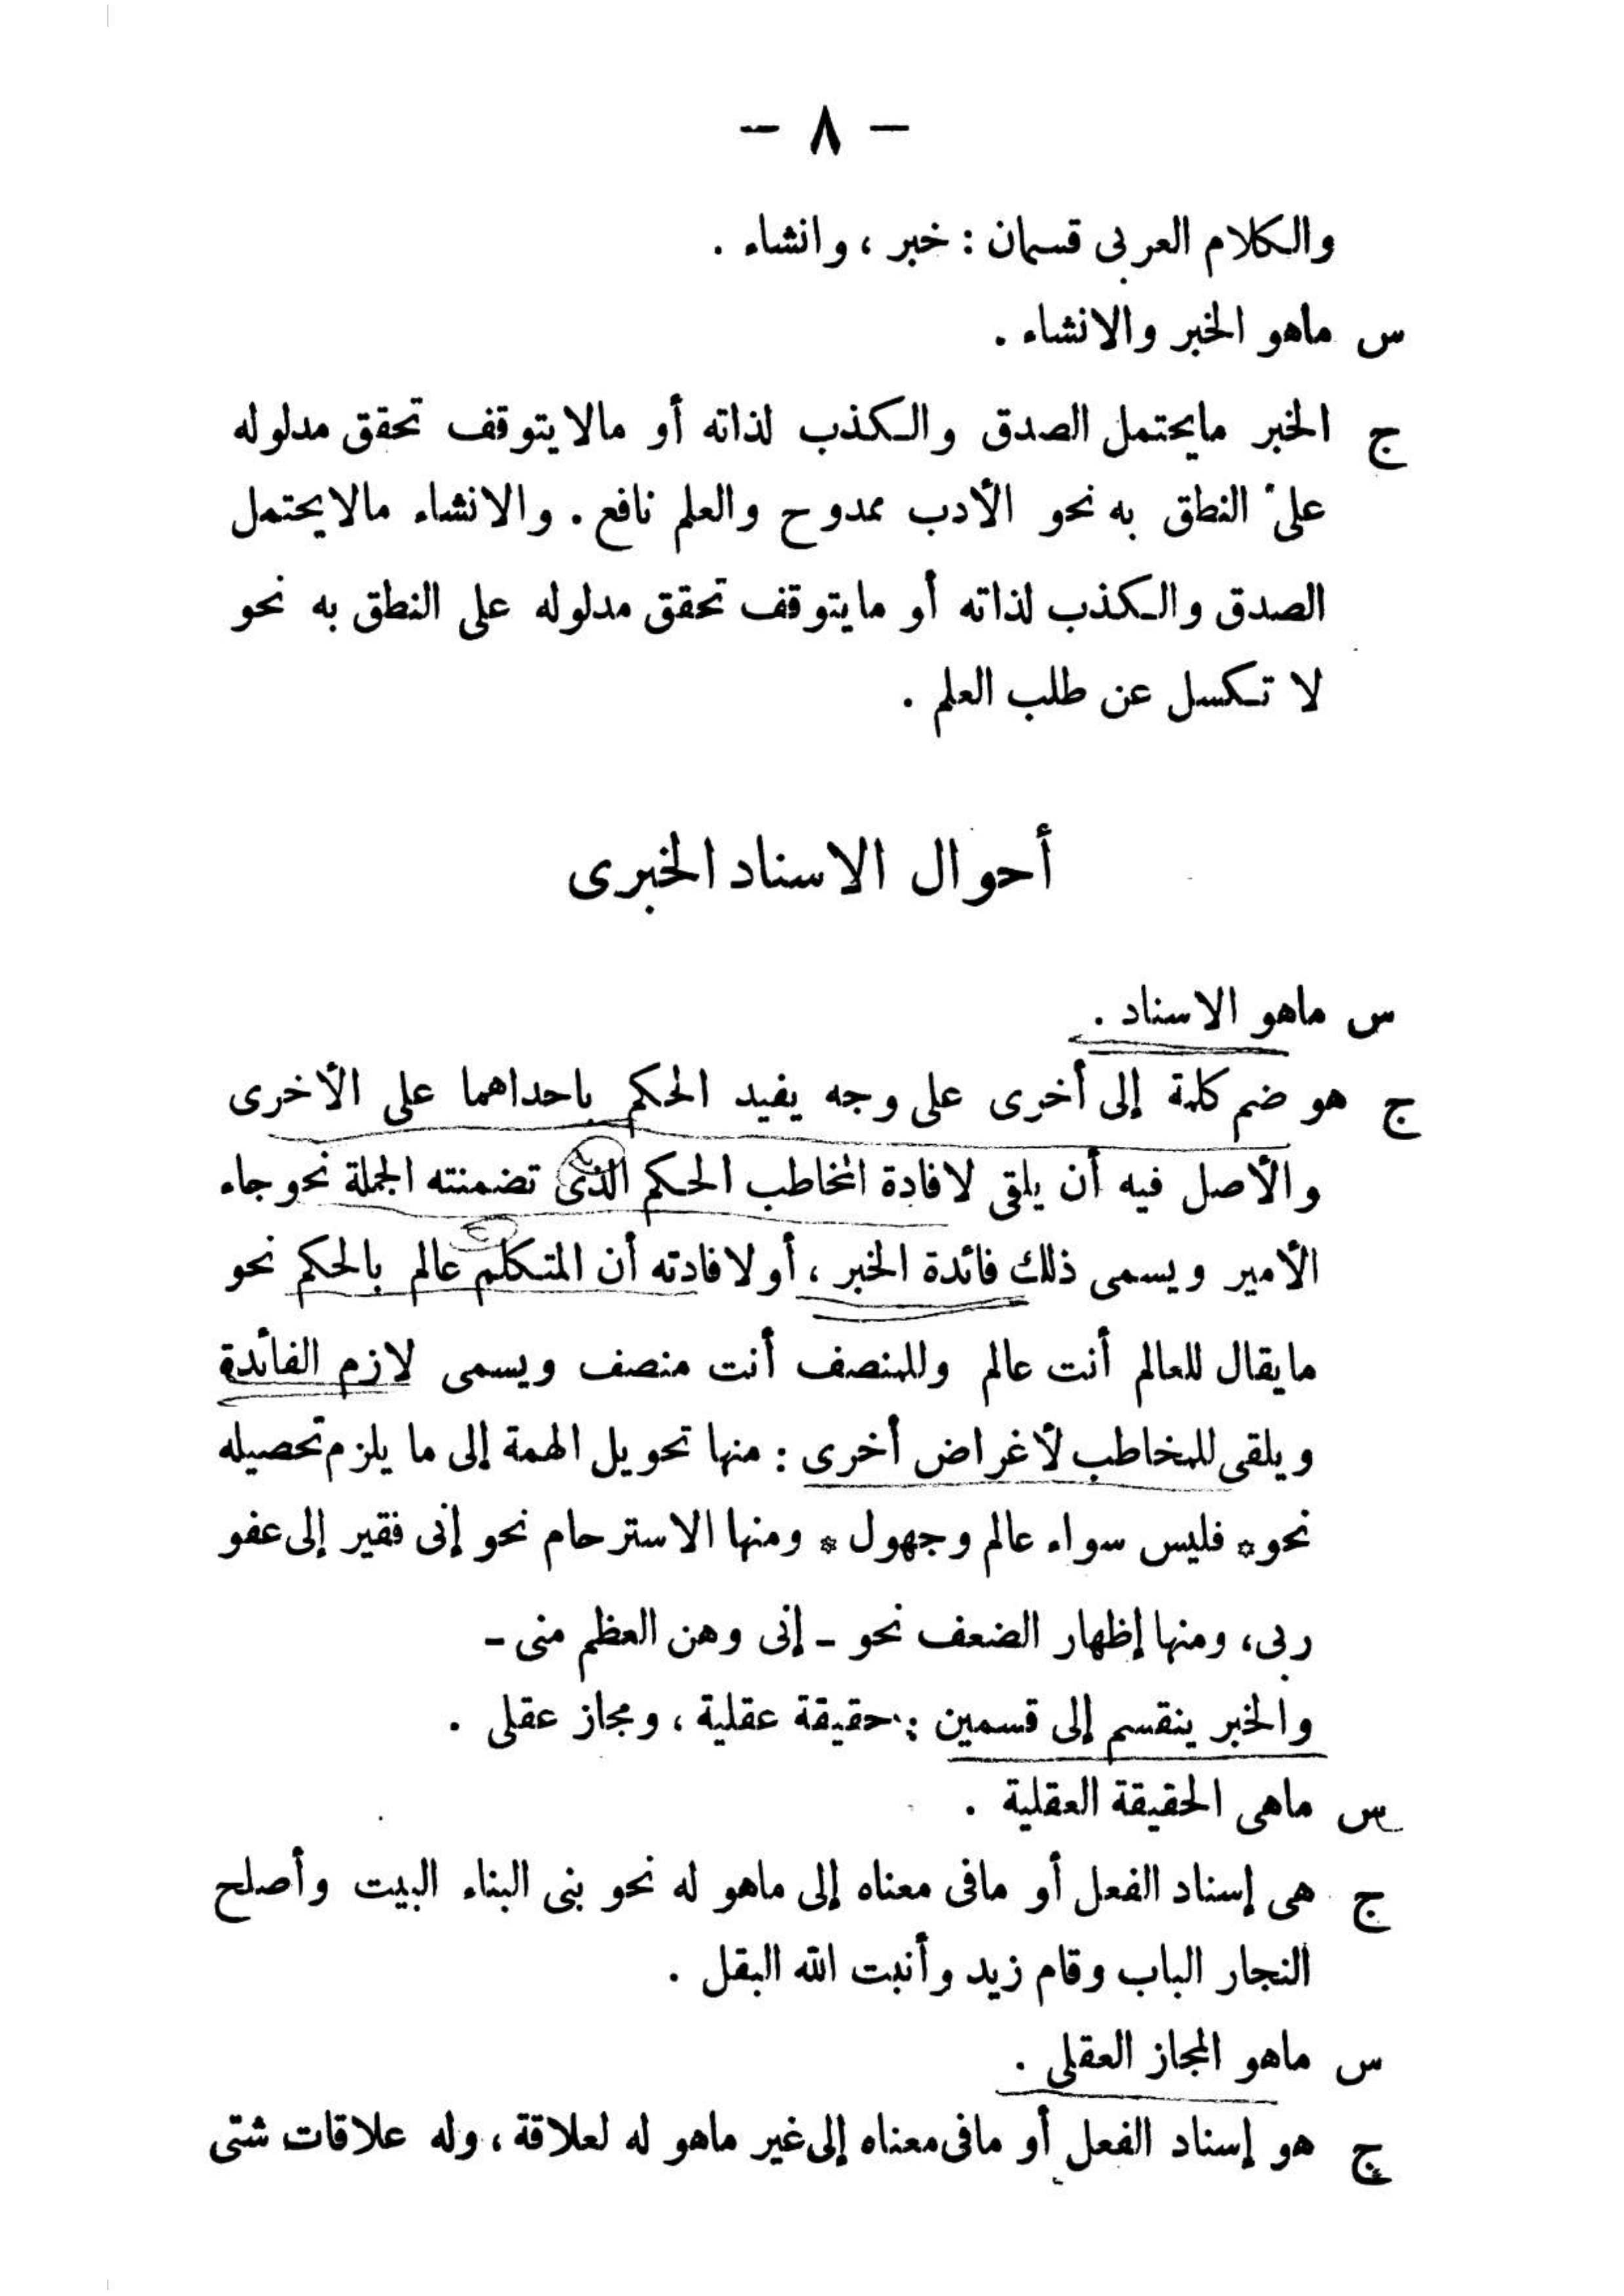 - ٨ -
والكلام العربى قسمان : خبر ، وانشاء .
س ماهو الخبر والانشاء .
ج الخبر مايحتمل الصدق والكذب لذاته أو مالايتوقف تحقق مدلوله
على النطق به نحو الأدب ممدوح والعلم نافع . والانشاء مالايحتمل
الصدق والكذب لذاته أو مايتوقف تحقق مدلوله على النطق به نحو
لا تكسل عن طلب العلم .
أحوال الاسناد الخبرى
س ماهو الاسناد .
ج هو ضم كلمة إلى أخرى على وجه يفيد الحكم باحداهما على الأخرى
والأصل فيه أن يلقى لافادة المخاطب الحكم الذى تضمنته الجملة نحو جاء
الأمير ويسمى ذلك فائدة الخبر ، أو لافادته أن المتكلم عالم بالحكم نحو
مايقال للعالم أنت عالم وللمنصف أنت منصف ويسمى لازم الفائدة
ويلقى للمخاطب لأغراض أخرى : منها تحويل الهمة إلى ما يلزم تحصيله
نحو * فليس سواء عالم وجهول * ومنها الاسترحام نحو إنى فقير إلى عفو
ربى ، ومنها إظهار الضعف نحو - إنى وهن العظم منى -
والخبر ينقسم إلى قسمين : حقيقة عقلية ، ومجاز عقلى .
س ماهى الحقيقة العقلية .
ج هى إسناد الفعل أو مافى معناه إلى ماهو له نحو بنى البناء البيت وأصلح
النجار الباب وقام زيد وأنبت الله البقل .
س ماهو المجاز العقلى .
ج هو إسناد الفعل أو مافى معناه إلى غير ماهو له لعلاقة ، وله علاقات شتى